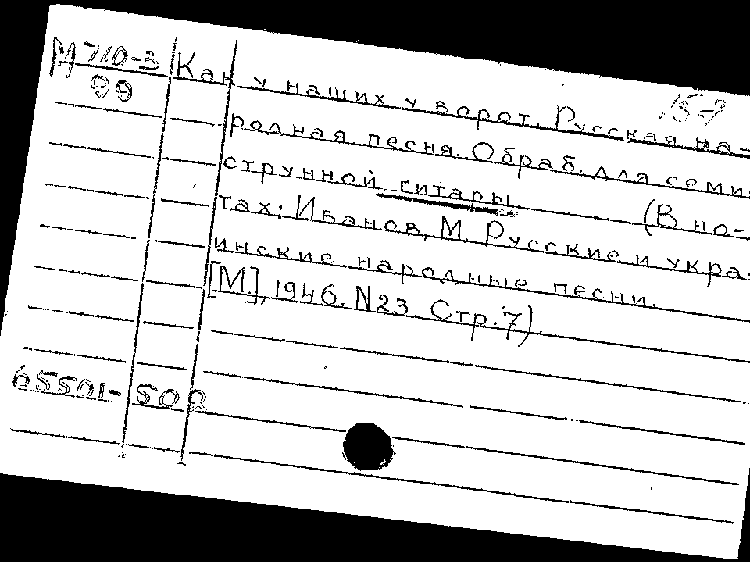 М 710-3
99
15-9
Как у наших у ворот. Русская на-
родная песня. Обраб. для семи-
струнной гитары. (В но-
тах: Иванов, М. Русские и укра-
инские народные песни.
[М.], 1946. N23 Стр. 7)
65501-500